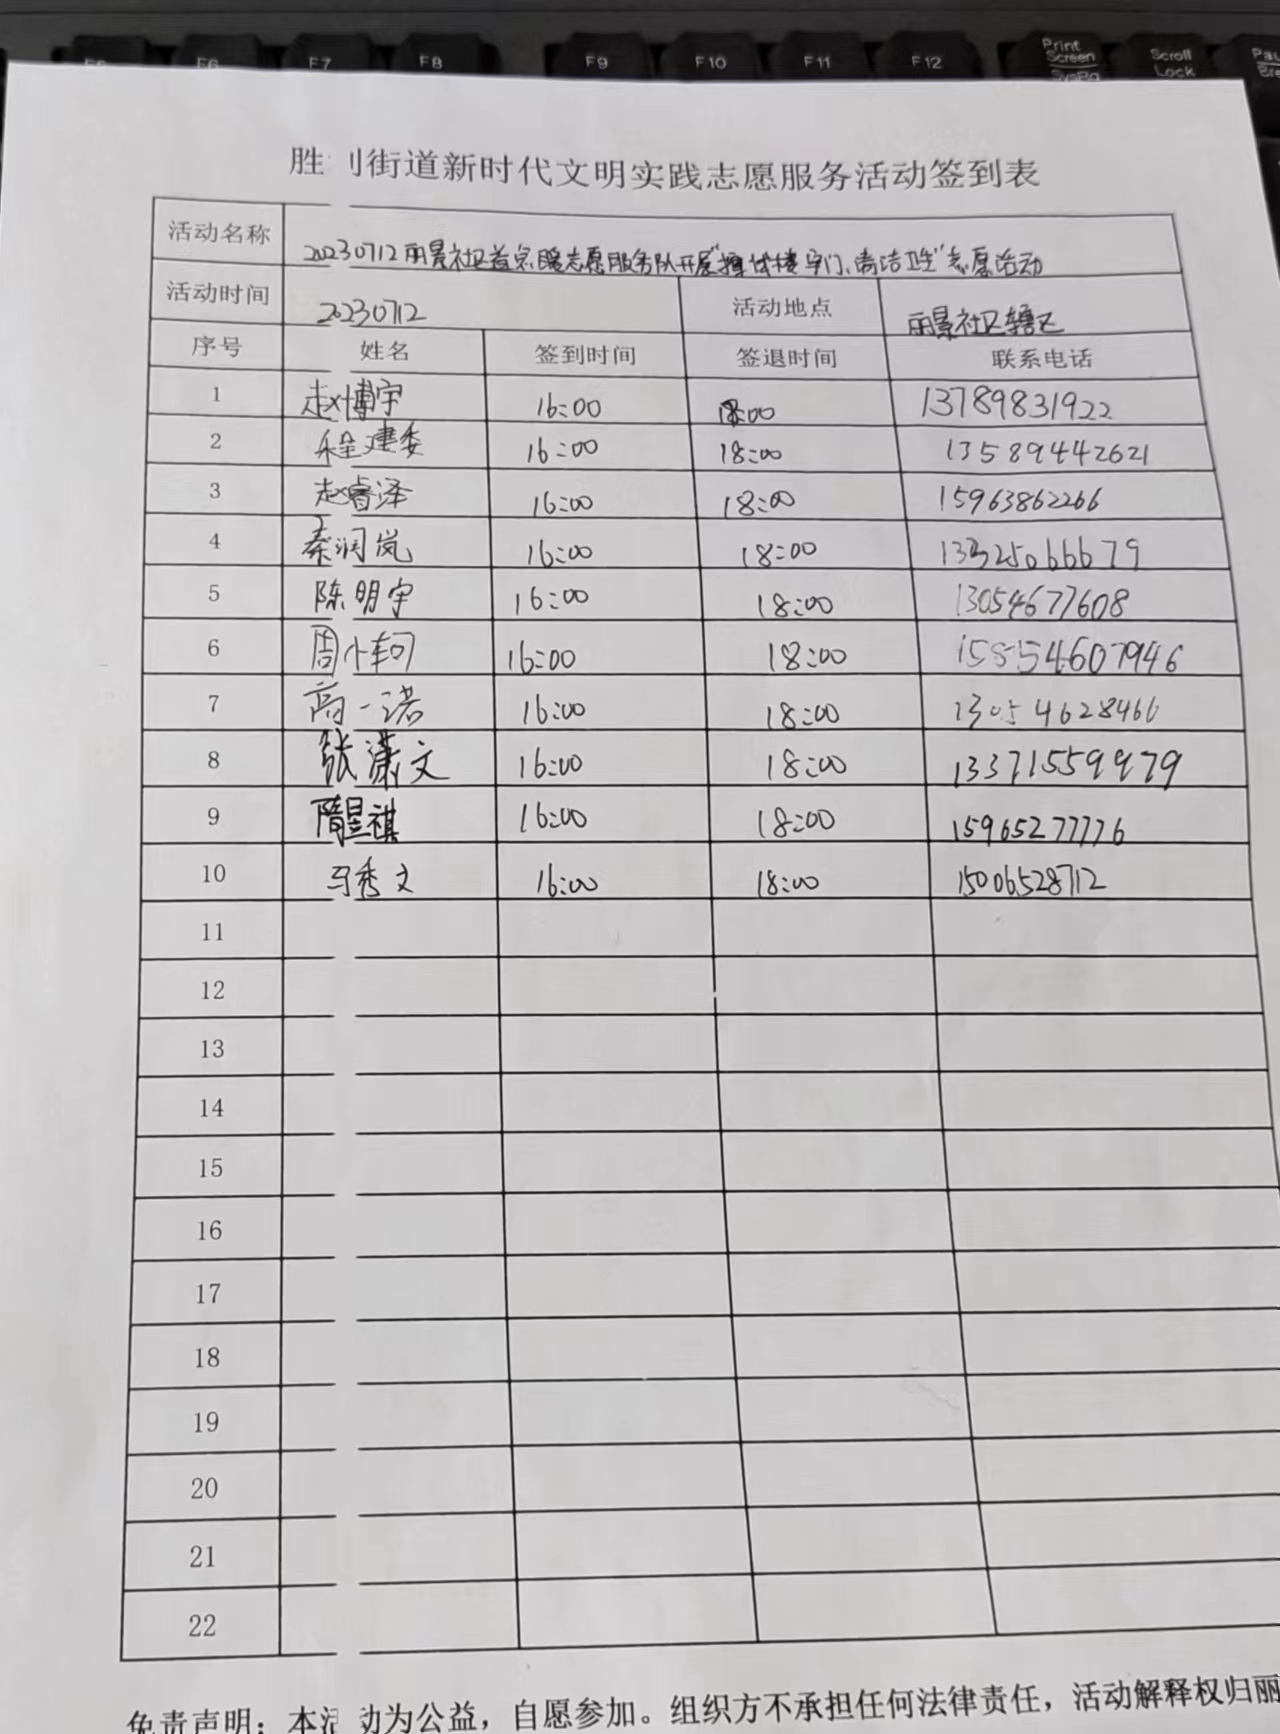 F6 F7 F8 F9 F10 F11 F12 Print Screen SysRq Scroll Lock
胜利街道新时代文明实践志愿服务活动签到表
活动名称 20230712丽景社区益京暖志愿服务队开展"擦拭楼宇门、清洁卫生"志愿活动
活动时间 20230712 活动地点 丽景社区辖区
序号 姓名 签到时间 签退时间 联系电话
1 赵博宇 16:00 18:00 13789831922
2 程建委 16:00 18:00 13589442621
3 赵睿泽 16:00 18:00 15963862266
4 秦润岚 16:00 18:00 13325066679
5 陈明宇 16:00 18:00 13054677608
6 周小轲 16:00 18:00 15854607946
7 高一诺 16:00 18:00 13054628466
8 张潇文 16:00 18:00 13371559979
9 隋昱祺 16:00 18:00 15965277776
10 马秀文 16:00 18:00 15006528712
11
12
13
14
15
16
17
18
19
20
21
22
免责声明：本活动为公益，自愿参加。组织方不承担任何法律责任，活动解释权归丽